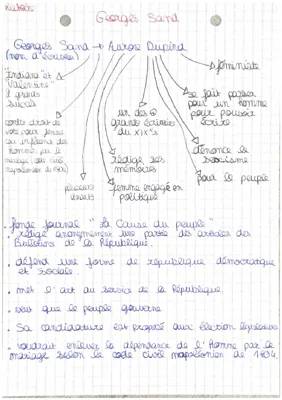 Georges Sand
Georges Sand → Aurore Dupin
(nom d'écrivain)
féministe
"Indiana" et
"Valentine"
2 grands
succès
se fait passer
pour un homme
pour pouvoir
écrire
un des
grands écrivains
du XIXe s
contre droit de
vote pour femme
dénonce le
sexisme
rédige ses
mémoires
pour le peuple
plusieurs
amants
femme engagé en
politique
• fonde journal "La Cause du peuple"
• rédige anonymement une partie des articles des
Bulletins de la République.
• défend une forme de république démocratique
et sociale.
• met l'art au service de la République.
• veut que le peuple gouverne
• Sa candidature est proposé aux élection législatives
• voudrait enlever la dépendance de l'Homme par le
mariage selon le code civil napoléonien de 1804.